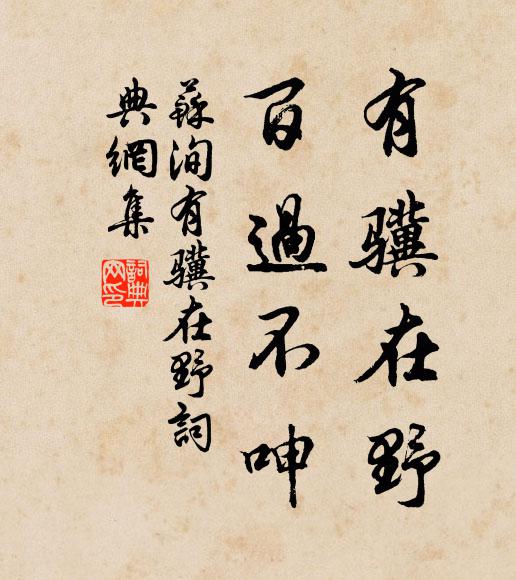 有骥在野
百過不呻
蘇洵有骥在野詞
典網集
詞典
网印